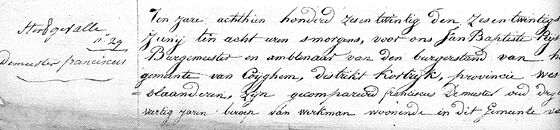 Sterfgevalle
n° 29
Demeester franciscus
Ten jare achthien honderd zesentwintig den zesentwintig
Junij ten acht uren smorgens, voor ons Jan Baptiste
Burgemeester en amblenaar van den burgerstand van
gemeente van Coyghem, distrikt Kortryk, provincie wes
vlaanderen, Zyn gecompareerd franciscus Demester oud dry
vertig jaren beroep van werkman woonende in dit Gemeente va